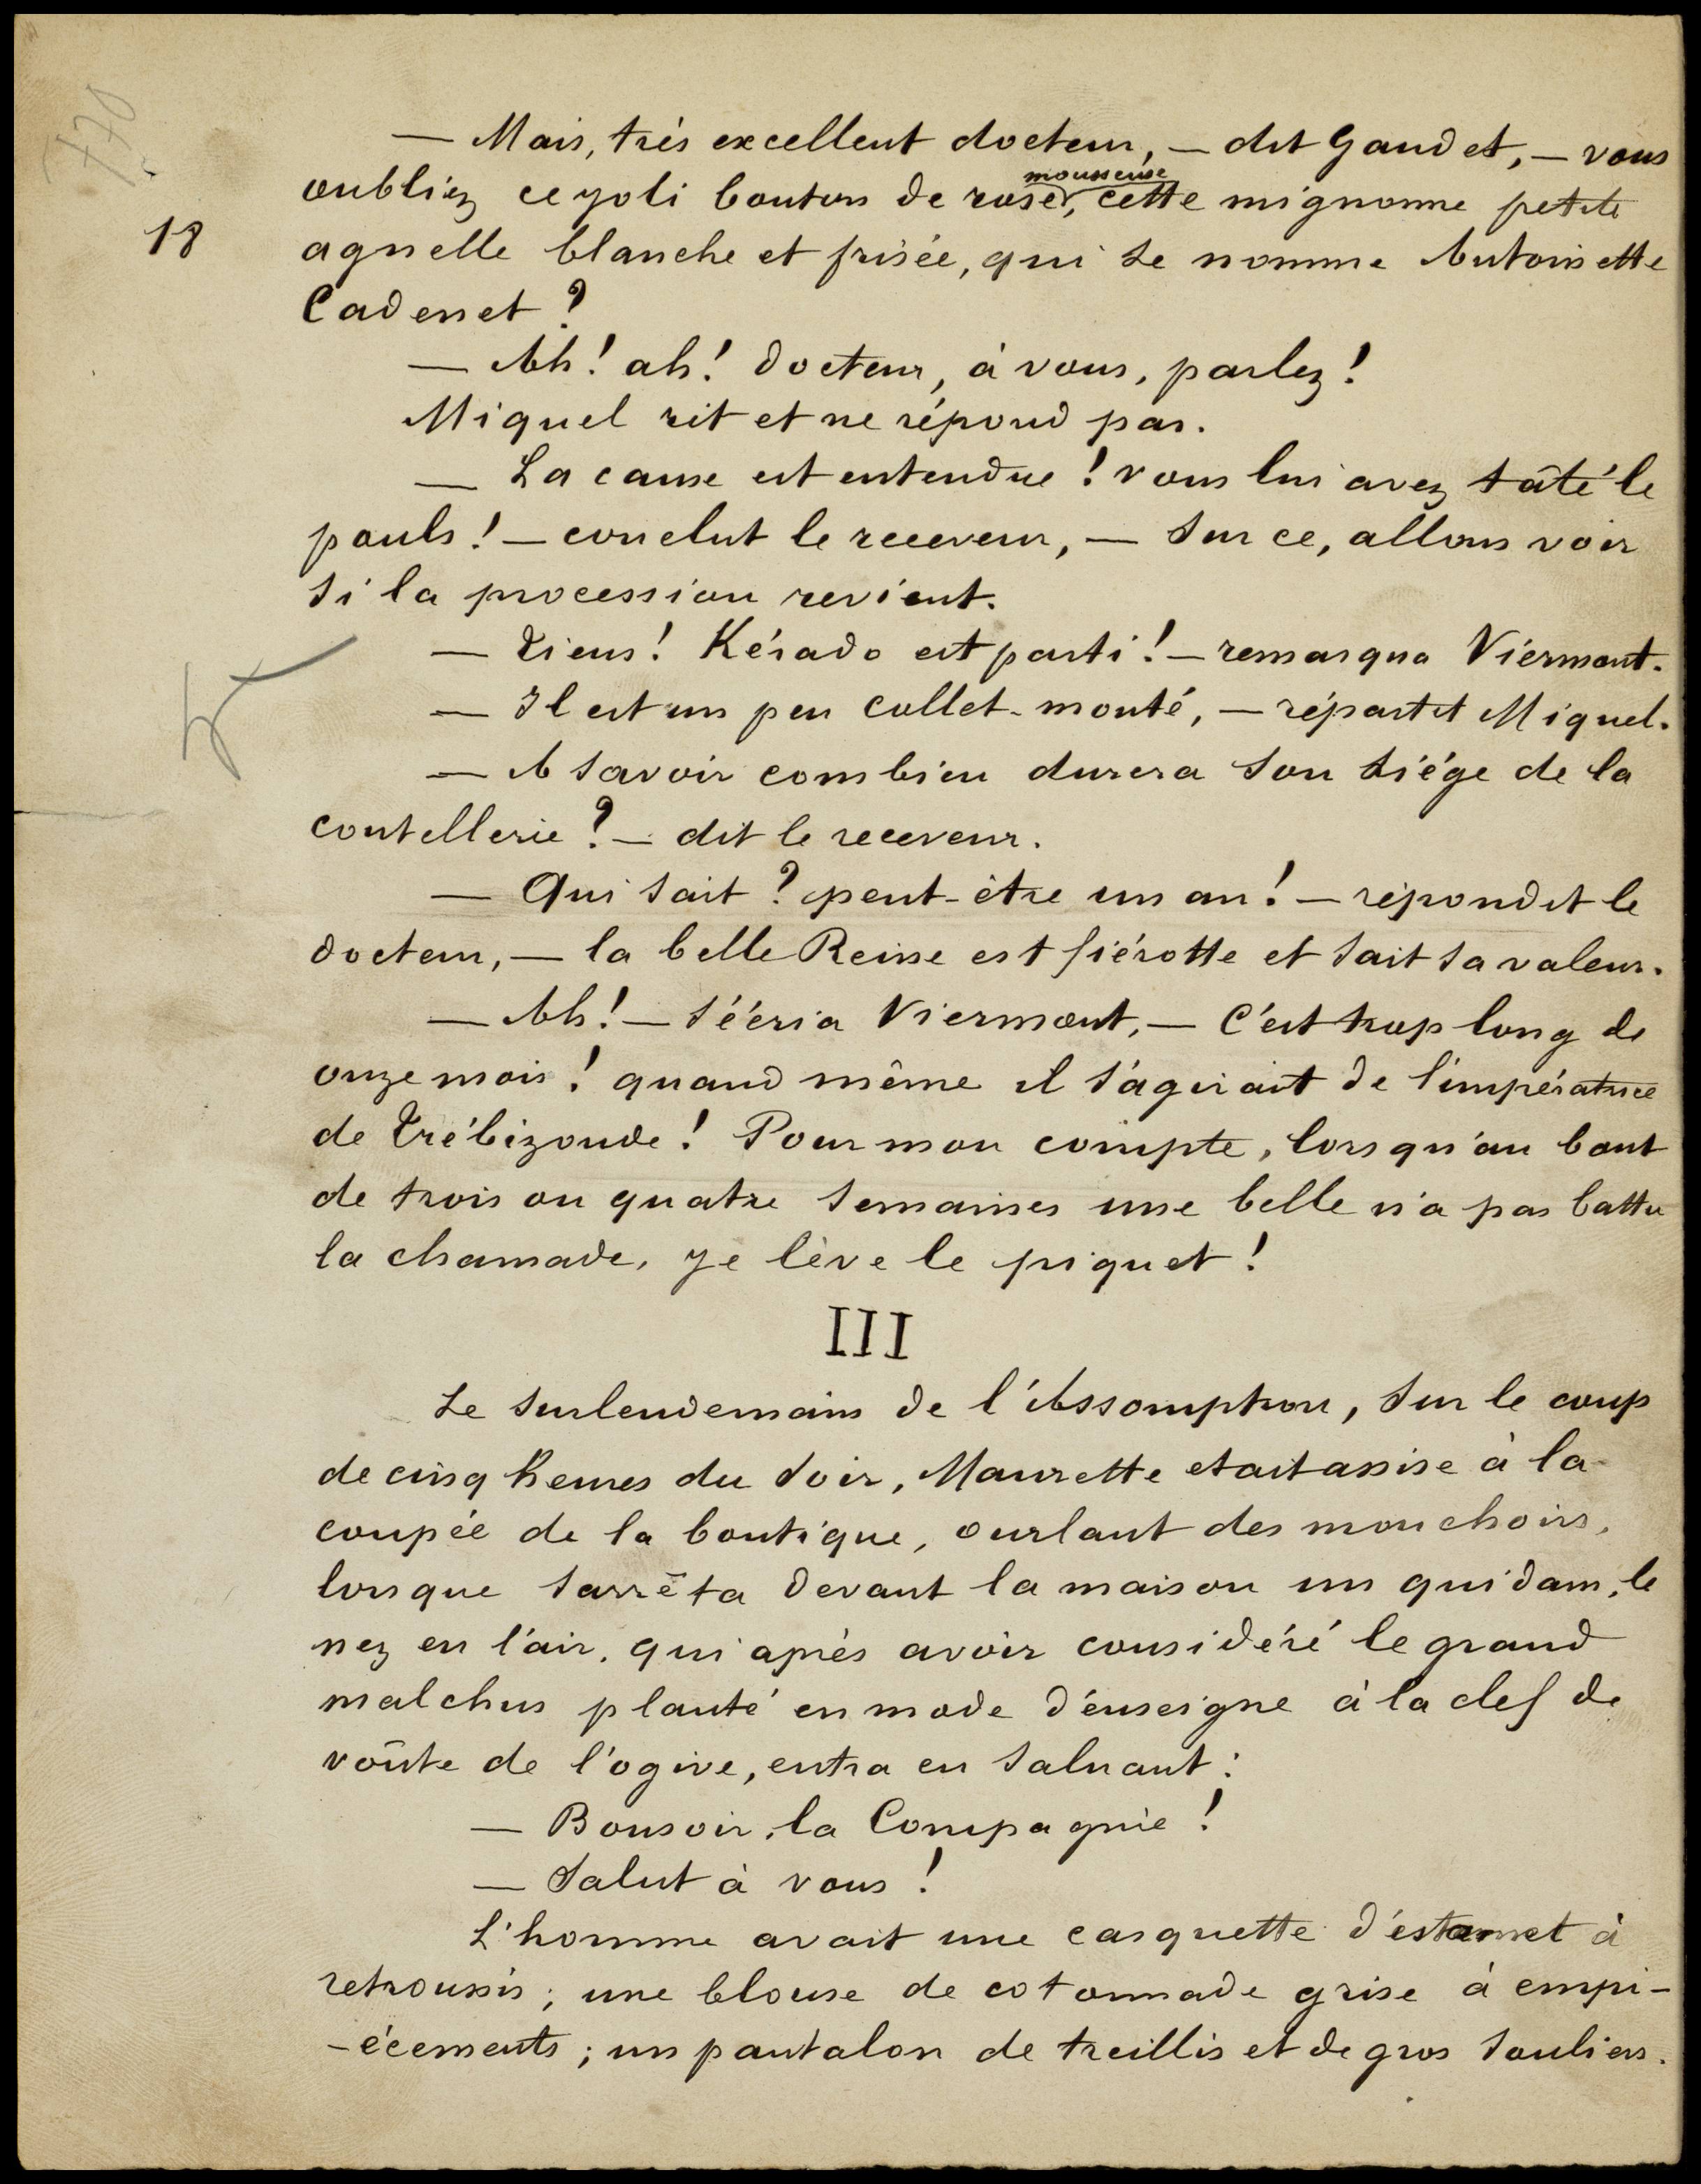 — Mais, très excellent docteur, — dit Gaudet, — vous
mousseuse
oubliez ce joli bouton de rose, cette mignonne petite
18
agnelle blanche et frisée, qui se nomme Antoinette
Cadenet ?
— Ah ! ah ! docteur, à vous, parlez !
Miquel rit et ne répond pas.
— La cause est entendue ! vous lui avez tâté le
pouls ! — conclut le receveur, — sur ce, allons voir
si la procession revient.
— Tiens ! Kérado est parti ! — remarqua Viermont.
— Il est un peu collet-monté, — répartit Miquel.
— A savoir combien durera son siége de la
coutellerie ? — dit le receveur.
— Qui sait ? peut-être un an ! — répondit le
docteur, — la belle Reine est fiérotte et sait sa valeur.
— Ah ! — s'écria Viermont, — c'est trop long de
onze mois ! quand même il s'agirait de l'impératrice
de Trébizonde ! Pour mon compte, lorsqu'au bout
de trois ou quatre semaines une belle n'a pas battu
la chamade, je lève le piquet !
III
Le surlendemain de l'Assomption, sur le coup
de cinq heures du soir, Maurette etait assise à la
coupée de la boutique, ourlant des mouchoirs,
lorsque s'arrêta devant la maison un quidam, le
nez en l'air, qui après avoir considéré le grand
malchus planté en mode d'enseigne à la clef de
voûte de l'ogive, entra en saluant :
— Bonsoir, la Compagnie !
— Salut à vous !
L'homme avait une casquette d'estamet à
retroussis ; une blouse de cotonnade grise à empi-
-écements ; un pantalon de treillis et de gros souliers.